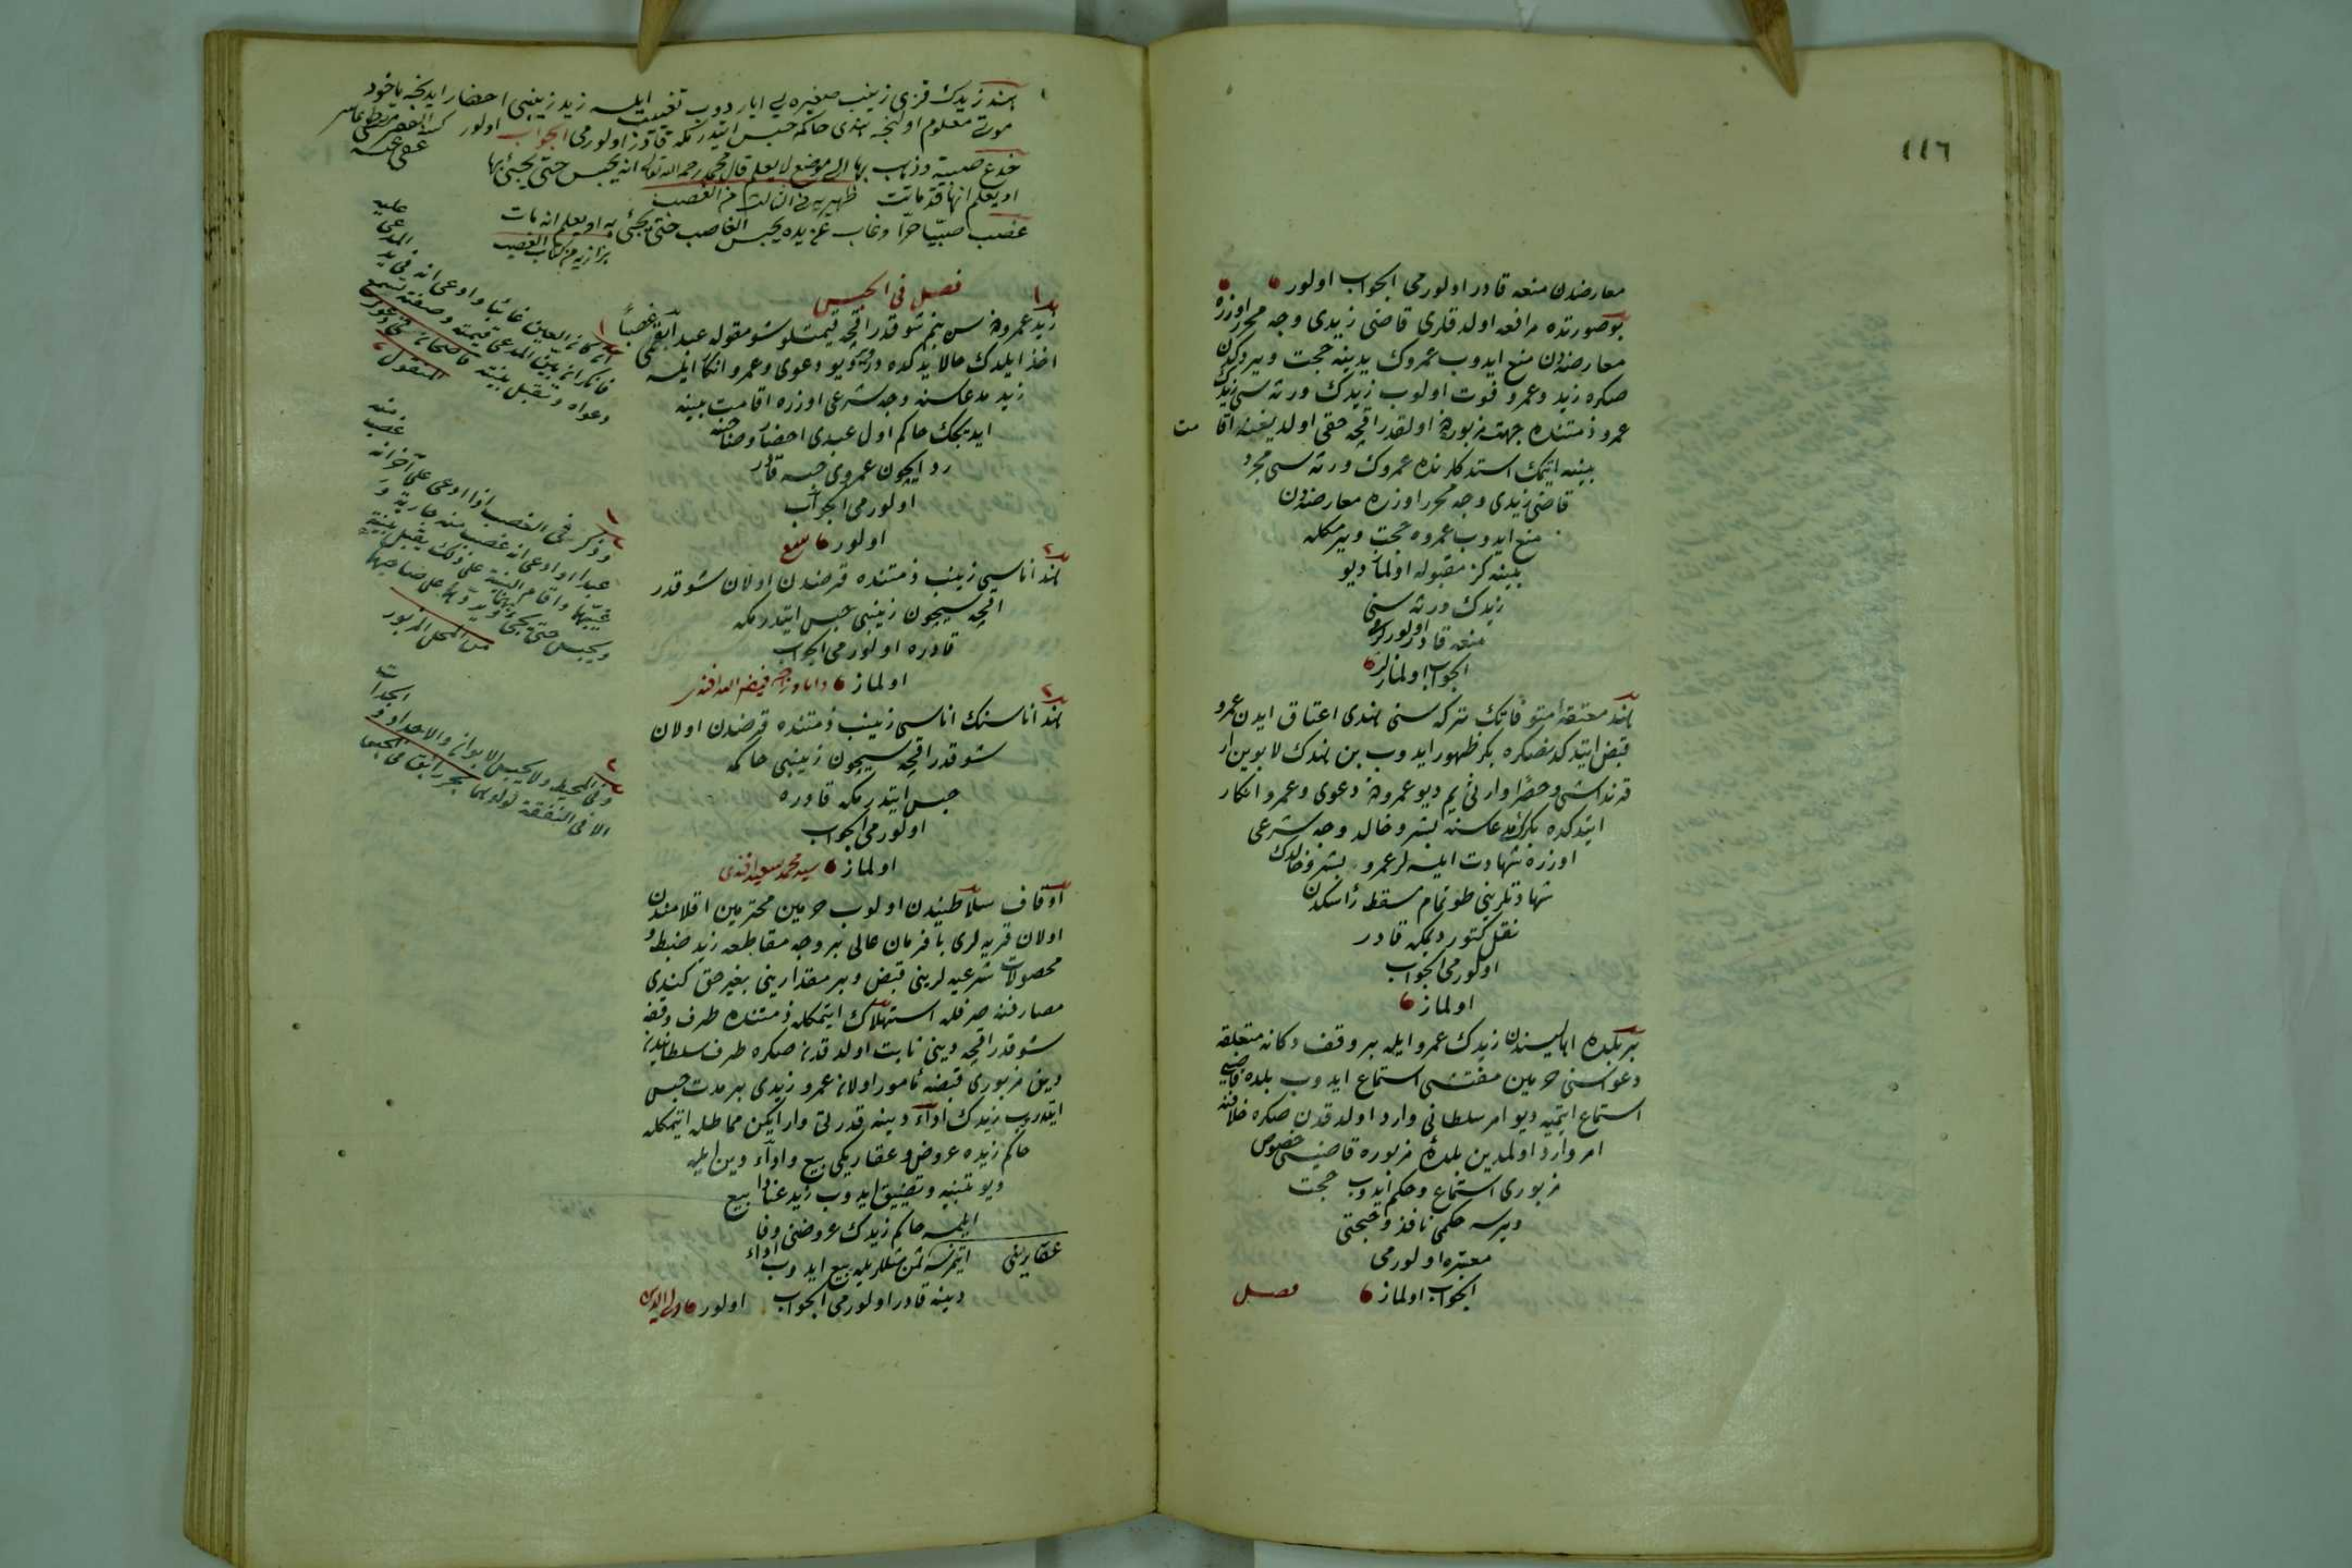 ٤٤٦
معارضدن منعه قادر اولورمی الجواب اولور
بو صورتده مرافعه اولدقلری قاضی زیدی وجه محرر اوزره
معارضه‌دن منع ایدوب عمروك یدینه حجت ویردکدن
صکره زید وعمرو فوت اولوب زیدك ورثه‌سی زیدك
عمرو ذمتنده جهت مزبوره‌دن اولقدر اقچه حقی اولدیغنه اقامت
بینه ایتمك استدکلرنده عمروك ورثه‌سی مجرد
قاضی زیدی وجه محرر اوزره معارضه‌دن
منع ایدوب عمروه حجت ویرمکله
بینه‌کز مقبوله اولماز دیو
زیدك ورثه‌سنی
منعه قادر اولورلرمی
الجواب اولمازلر
هند معتقهٔ متوفاتك ترکه‌سنی هندی اعتاق ایدن عمرو
قبض ایتدکدنصکره بکر ظهور ایدوب بن هندك لابوین ار
قرنداشی وحصرا وارثی یم دیو عمرودن دعوی وعمرو انکار
ایتدکده بکرك مدعاسنه بشر وخالد وجه شرعی
اوزره شهادت ایلسه‌لر عمرو بشر وخالدك
شهادتلرینی طوتمام مسقط رأسکدن
نقل کتور دیمکه قادر
اولورمی الجواب
اولماز
بر بلده اهالیسندن زیدك عمرو ایله بر وقف دکانه متعلقه
دعواسنی حرمین مفتشی استماع ایدوب بلده قاضیسی
استماع ایتمیه دیو امر سلطانی وارد اولدقدن صکره خلافنه
امر وارد اولمدین بلدهٔ مزبوره قاضیسی خصوص
مزبوری استماع وحکم ایدوب حجت
ویرسه حکمی نافذ وحجتی
معتبره اولورمی
الجواب اولماز
فصل
هند زیدك قزی زینب صغیره‌یی ایاردوب تغییب ایلسه زید زینبی احضار ایدنجه یاخود
موتی معلوم اولنجه هندی حاکمه حبس ایتدرمکه قادر اولورمی الجواب اولور
عفی عنه
خدع صبیة وذهب بها الی موضع لا یعلم قال محمد رحمه الله تعالی انه یحبس حتی یجیء بها
او یعلم انها قد ماتت ظهیریه فی الثالث من الغصب
غصب صبیا حرا وغاب عن یده یحبس الغاصب حتی یجیء به او یعلم انه مات
بزازیه من کتاب الغصب
فصل فی الحبس
زید عمرودن سن بنم شو قدر اقچه قیمتلو شو مقوله عبد آبقمی غصبا
اخذ ایلدك حالا یدکده در دیو دعوی وعمرو انکار ایلسه
زید مدعاسنه وجه شرعی اوزره اقامت بینه
ایدیجك حاکم اول عبدی احضار وصاحبنه
رد ایچون عمروی حبسه قادر
اولورمی الجواب
اولور
هند اناسی زینب ذمتنده قرضدن اولان شو قدر
اقچه‌سیچون زینبی حبس ایتدرمکه
قادره اولورمی الجواب
اولماز فیض الله افندی
هند اناسنك اناسی زینب ذمتنده قرضدن اولان
شو قدر اقچه‌سیچون زینبی حاکمه
حبس ایتدرمکه قادره
اولورمی الجواب
اولماز سید محمد سعید افندی
اوقاف سلاطیندن اولوب حرمین محترمین اقلامندن
اولان قریه‌لری با فرمان عالی بر وجه مقاطعه زید ضبط و
محصولات شرعیه‌لرینی قبض وبر مقدارینی بغیر حق کندی
مصارفنه صرفله استهلاك ایتمکله ذمتنده طرف وقفه
شو قدر اقچه دینی ثابت اولدقدن صکره طرف سلطانیدن
دین مزبوری قبضه مأمور اولان عمرو زیدی بر مدت حبس
ایتدروب زیدك اداء دینه قدرتی وار ایکن مماطله ایتمکله
حاکم زیده عروض وعقاریکی بیع واداء دین ایله
دیو تنبیه وتضییق ایدوب زید عنادا بیع
ایلمسه حاکم زیدك عروضنی وفا
ایتمزسه عقارینی ثمن مثللریله بیع ایدوب اداء
دینه قادر اولورمی الجواب اولور
ان کان العین غائبا وادعی انه فی ید المدعی علیه
فانکر ان بین المدعی قیمته وصفته تسمع
دعواه وتقبل بینته
وذکر فی الغصب اذا ادعی علی آخر انه غصب منه
عبدا او ادعی انه غصب منه جاریة و
غیبها واقام البینة علی ذلك یقبل بینته
ویحبس حتی یجیء بها ویردها علی صاحبها
من المحل المزبور
وفی المحیط ولا یحبس الابوان والاجداد والجدات
الا فی النفقة لولدهما بحر رایق فی الحبس